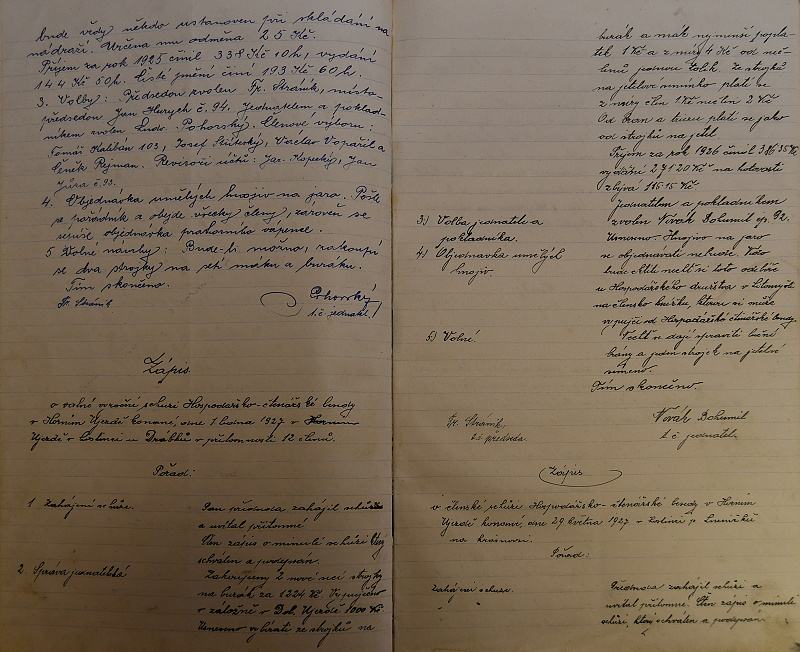 bude vždy někdo ustanoven při skládání na
nádraží. Určena mu odměna 25 Kč.
Příjem za rok 1925 činil 338 Kč 10 h, vydání
144 Kč 50 h. Čisté jmění činí 193 Kč 60 h.
3. Volby: Předsedou zvolen Fr. Stráník, místo-
předsedou Jan Hurych č. 94. Jednatelem a poklad-
níkem zvolen Lud. Pohorský. Členové výboru:
Tomáš Kalibán 103, Josef Štítecký, Václav Vopařil a
Čeněk Rejman. Revisoři účtů: Jar. Kopecký, Jan
Jůza č. 93.
4. Objednávka umělých hnojiv na jaro. Pošle
se hořádník a obejde všecky členy, zároveň se
upíše objednávka prachového vápence.
5. Volné návrhy: Bude-li možno, zakoupí
se dva strojky na setí máku a buráku.
Tím skončeno.
Fr. Stráník
Pohorský
t. č. jednatel.
Zápis
o valné výroční schůzi Hospodářsko-čtenářské besedy
v Horním Újezdě konané, dne 1. ledna 1927 v Horním
Újezdě v hostinci u Drábků v přítomnosti 12 členů.
Pořad:
1 Zahájení schůze.
Pan předseda zahájil schůzi
a uvítal přítomné
Čten zápis o minulé schůzi který
schválen a podepsán.
2 Správa jednatelská
Zakoupeny 2 nové secí strojky
na burák za 1224 Kč. Vypůjčeno
v záložně v Dol. Újezdě 1000 Kč.
Usneseno vybírati ze strojků na
burák a mák nejmenší popla-
tek 1 Kč a z míry 4 Kč od neč-
lenů jednou tolik. Ze strojků
na jetelové semínko platí se
z míry člen 1 Kč nečlen 2 Kč
Od bran a buru platí se jako
od strojků na jetel.
Příjem za rok 1926 činil 386 35 Kč
vydání 271 20 Kč na hotovosti
zbývá 115 15 Kč.
3.) Volba jednatele a
pokladníka.
Jednatelem a pokladníkem
zvolen Novák Bohumil čp. 92.
4.) Objednávka umělých
hnojiv.
Usneseno. Hnojivo na jaro
se objednávati nebude. Kdo
bude chtít nechť si toto odebére
u Hospodářského družstva v Litomyšli
na člensko knížku, kterou si může
vypůjči od Hospodářsko čtenářské besedy.
5.) Volné.
Nechť se dají spraviti luční
brány a jeden strojek na jetelové
semeno.
Tím skončeno.
Fr. Stráník,
t. č. předseda.
Novák Bohumil
t. č. jednatel.
Zápis
o členské schůzi Hospodářsko-čtenářské besedy v Horním
Újezdě konané, dne 29 května 1927 v hostinci p.
na
Pořad:
Zahájení schůze.
Předseda zahájil schůzi a
uvítal přítomné. Čten zápis o minulé
schůzi, který schválen a podepsán